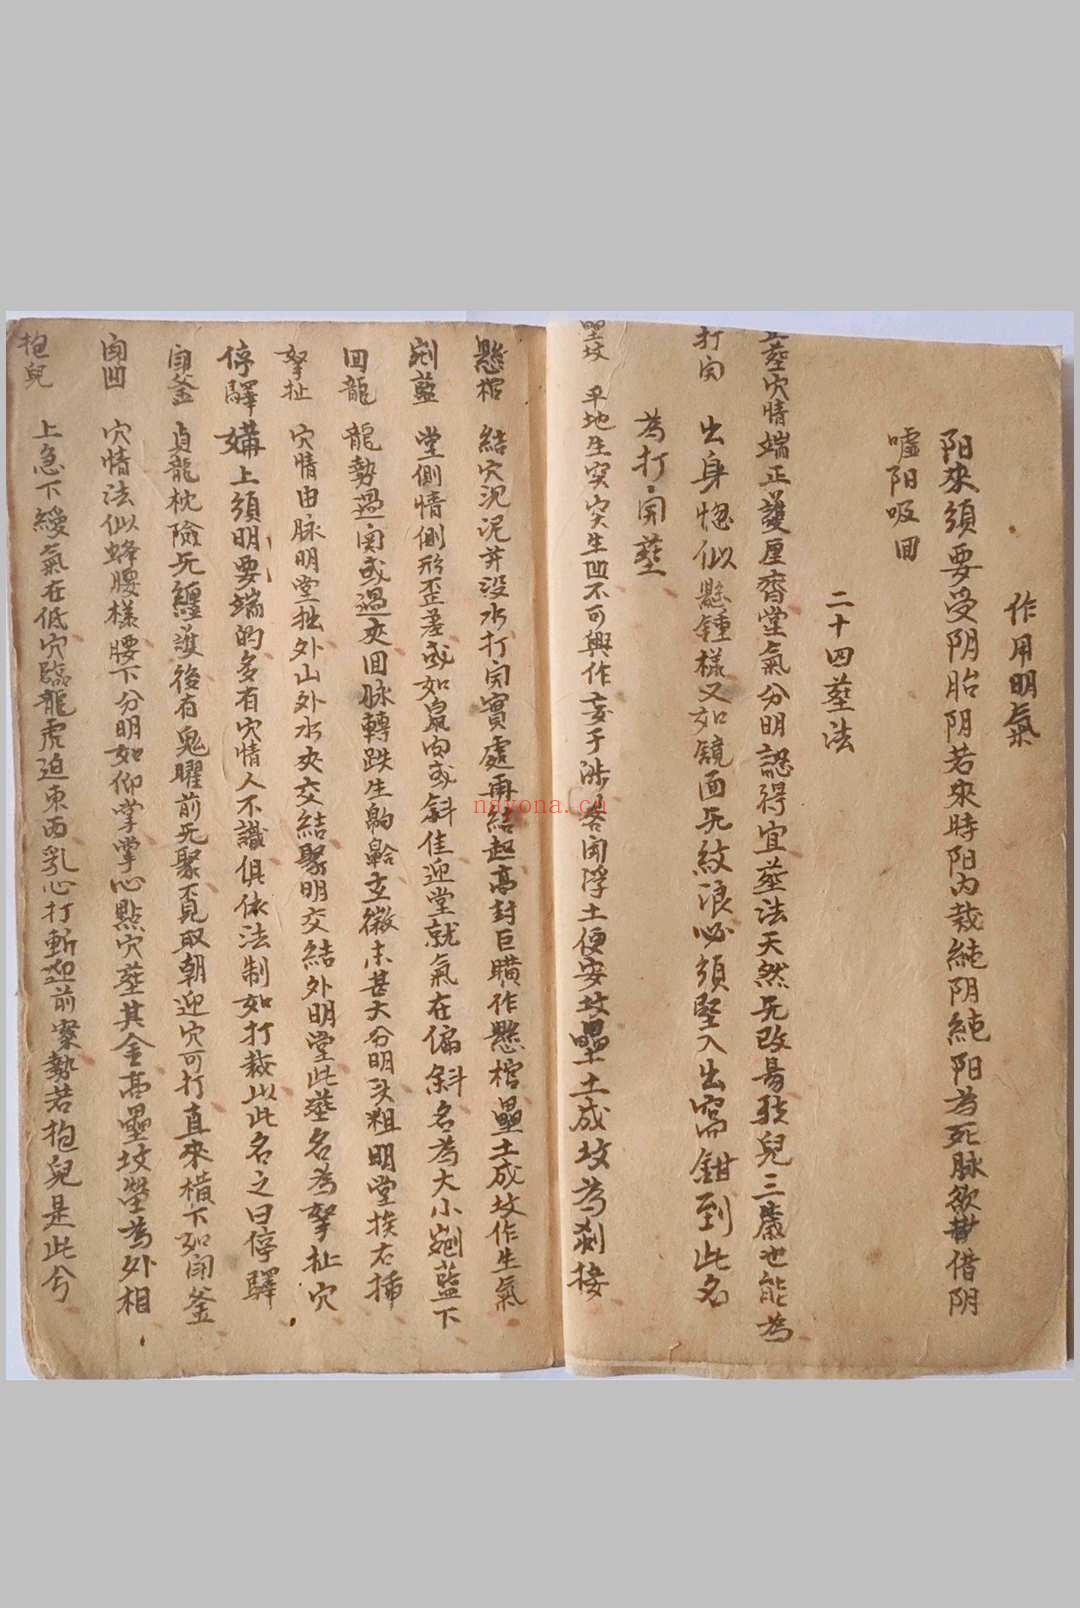 作用明氣
阳來須要受阴胎阴若來時阳内栽純阴純阳為死脉欲昔借阴
嘘阳吸回
二十四塟法
正塟穴情端正護厘齊堂氣分明認得宜塟法天然旡改易孩兒三歲也能為
打開 出身惚似懸鍾樣又如鏡面旡紋浪必須堅入出窩鉗到此名
為打開塟
壘坟 平地生突突生凹不可興作妄于涉客開浮土便安坟壘土成坟為剎接
懸棺 結穴況泥并没水打開實處再結起高封巨曠作懸棺壘土成坟作生氣
剜藍 堂側情側形歪差或如臬肉或斜佳迎堂就氣在偏斜名為大小剜藍下
回龍 龍勢過関或過夾回脉轉跌生齁齡立微未甚大分明头粗明堂挨右揷
拏扯 穴情由脉明堂拙外山外水夾交結聚明交結外明堂此塟名為拏扯穴
停驛 媾上須明要端的多有穴情人不識俱依法制如打裁以此名之曰停驛
闭釜 貞龍枕險旡纏護後有鬼曜前旡聚覔取朝迎穴可打直來橫下如闭釜
闭凹 穴情法似蜂腰樣腰下分明如仰掌掌心點穴塟其金高壘坟塋為外相
抱兒 上急下緩氣在低穴臨龍虎迫東西乳心打斬迎前案勢若抱兒是此兮
nayona.cn